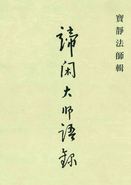 寶靜法師輯
諦閑大師語錄